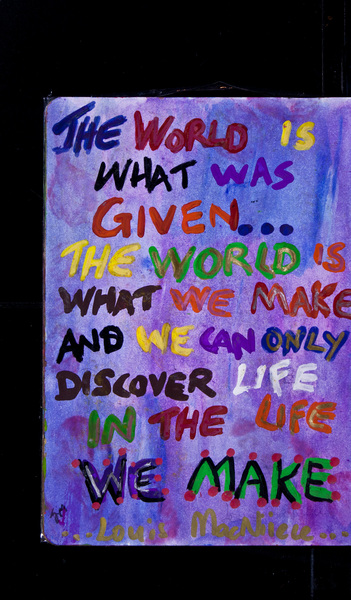 THE WORLD IS
WHAT WAS
GIVEN...
THE WORLD IS
WHAT WE MAKE
AND WE CAN ONLY
DISCOVER LIFE
IN THE LIFE
WE MAKE
...Louis MacNeice...